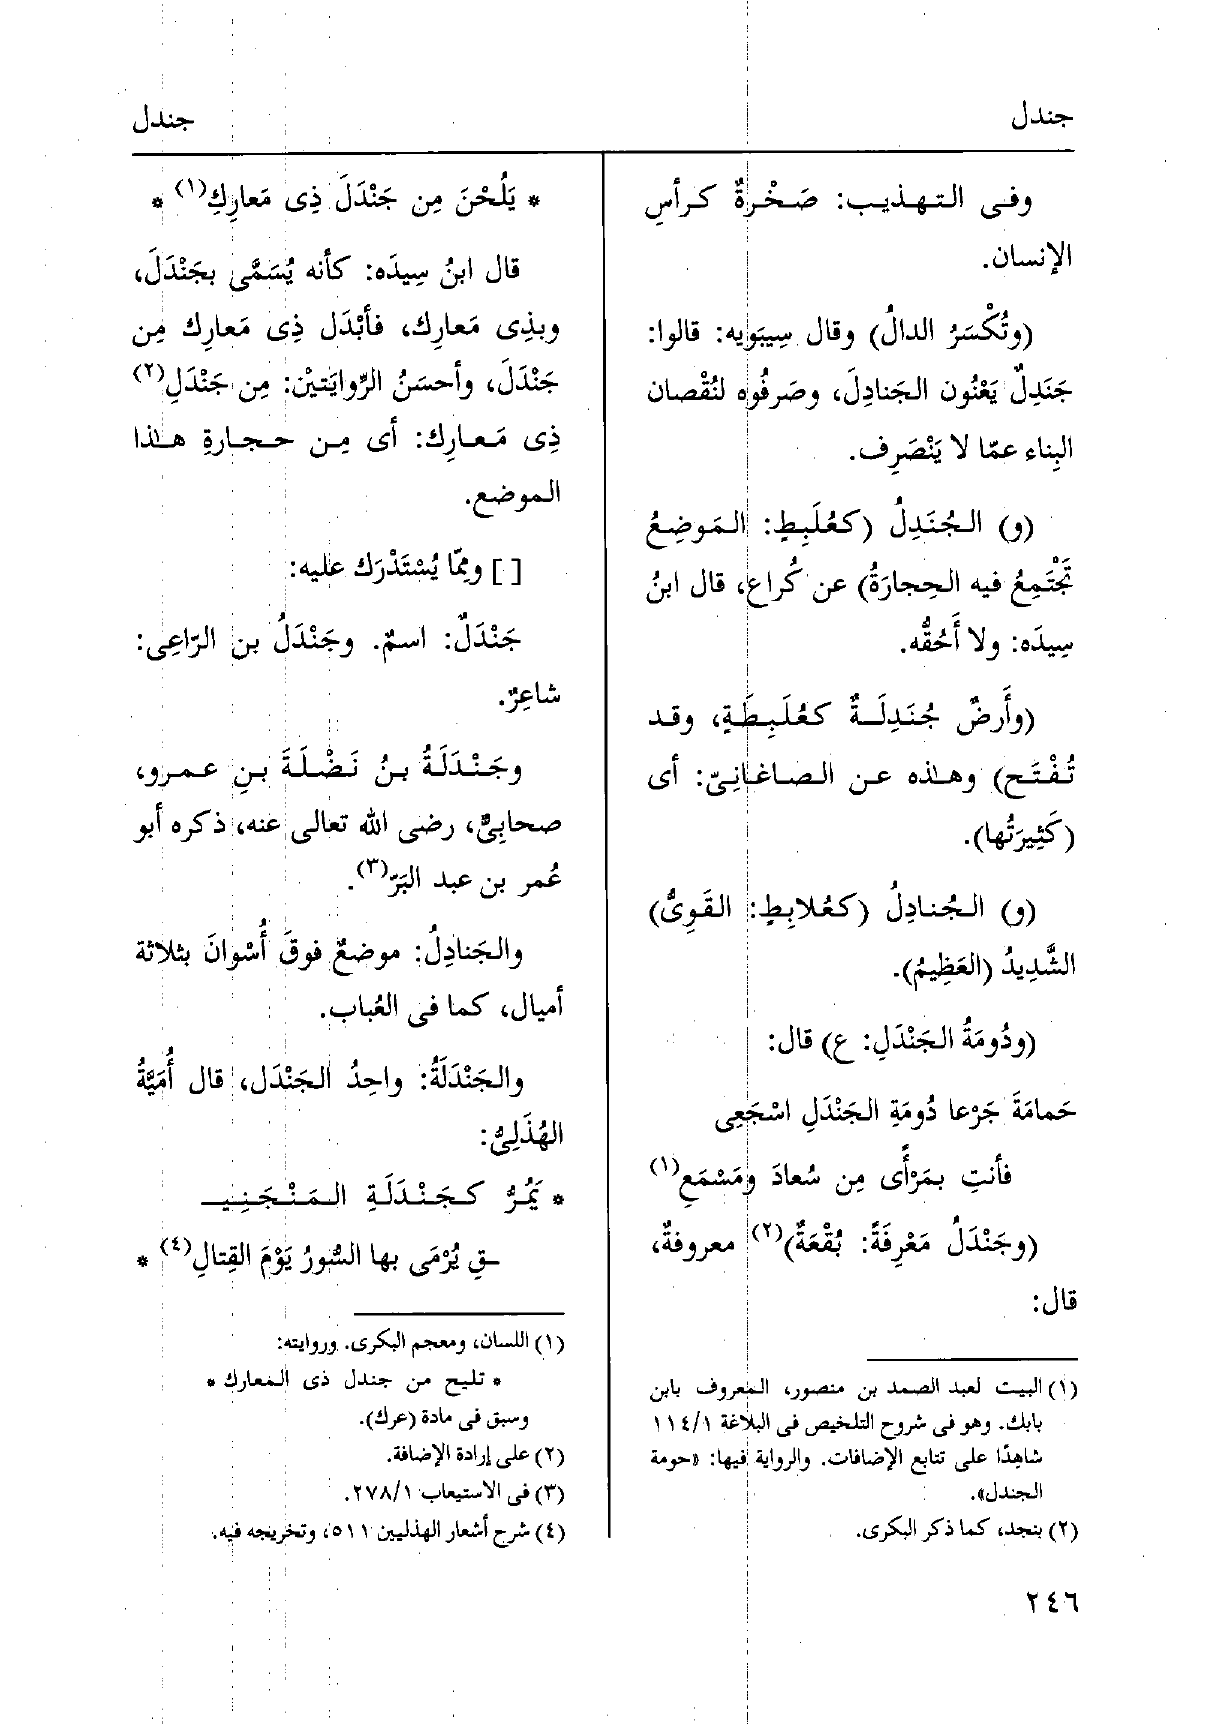 جندل
جندل
وفى التهذيب: صَخْرةٌ كرأسِ
الإنسان.
(وتُكْسَرُ الدالُ) وقال سِيبَوَيه: قالوا:
جَنَدِلٌ يَعْنُون الجَنادِلَ، وصَرفُوه لنُقْصان
البِناء عمّا لا يَنْصَرِف.
(و) الجُنَدِلُ (كعُلَبِطٍ: المَوضِعُ
تَجْتَمِعُ فيه الحِجارَةُ) عن كُراع، قال ابنُ
سِيدَه: ولا أَحُقُّه.
(وأَرضٌ جُنَدِلَةٌ كعُلَبِطَةٍ، وقد
تُفْتَح) وهٰذه عن الصاغانِىّ: أى
(كَثِيرَتُها).
(و) الجُنادِلُ (كعُلابِطٍ: القَوِىُّ)
الشَّدِيدُ (العَظِيمُ).
(ودُومَةُ الجَنْدَلِ: ع) قال:
حَمامَةَ جَرْعا دُومَةِ الجَنْدَلِ اسْجَعِى
فأنتِ بمَرْأًى مِن سُعادَ ومَسْمَعِ(١)
(وجَنْدَلُ مَعْرِفَةً: بُقْعَةٌ)(٢) معروفةٌ،
قال:
(١) البيت لعبد الصمد بن منصور، المعروف بابن
بابك. وهو فى شروح التلخيص فى البلاغة ١١٤/١
شاهدًا على تتابع الإضافات. والرواية فيها: «حومة
الجندل».
(٢) بنجد، كما ذكر البكرى.
* يَلُحْنَ مِن جَنْدَلَ ذِى مَعارِكِ(١) *
قال ابنُ سِيدَه: كأنه يُسَمَّى بجَنْدَلَ،
وبذِى مَعارِك، فأبْدَل ذِى مَعارِك مِن
جَنْدَلَ، وأحسَنُ الرِّوايَتيْن: مِن جَنْدَلِ(٢)
ذِى مَعارِك: أى مِن حجارةِ هٰذا
الموضع.
[ ] ومِمّا يُسْتَدْرَك عليه:
جَنْدَلٌ: اسمٌ. وجَنْدَلُ بن الرّاعِى:
شاعِرٌ.
وجَنْدَلَةُ بنُ نَضْلَةَ بنِ عمرو،
صحابِىٌّ، رضى الله تعالى عنه، ذكره أبو
عُمر بن عبد البَرّ(٣).
والجَنادِلُ: موضعٌ فوقَ أُسْوانَ بثلاثة
أميال، كما فى العُباب.
والجَنْدَلَةُ: واحِدُ الجَنْدَل، قال أُمَيَّةُ
الهُذَلِىُّ:
* يَمُرُّ كجَنْدَلَةِ المَنْجَنِيـ
ـقِ يُرْمَى بها السُّورُ يَوْمَ القِتالِ(٤) *
(١) اللسان، ومعجم البكرى. وروايته:
* تليح من جندل ذى المعارك *
وسبق فى مادة (عرك).
(٢) على إرادة الإضافة.
(٣) فى الاستيعاب ٢٧٨/١.
(٤) شرح أشعار الهذليين ٥١١، وتخريجه فيه.
٢٤٦